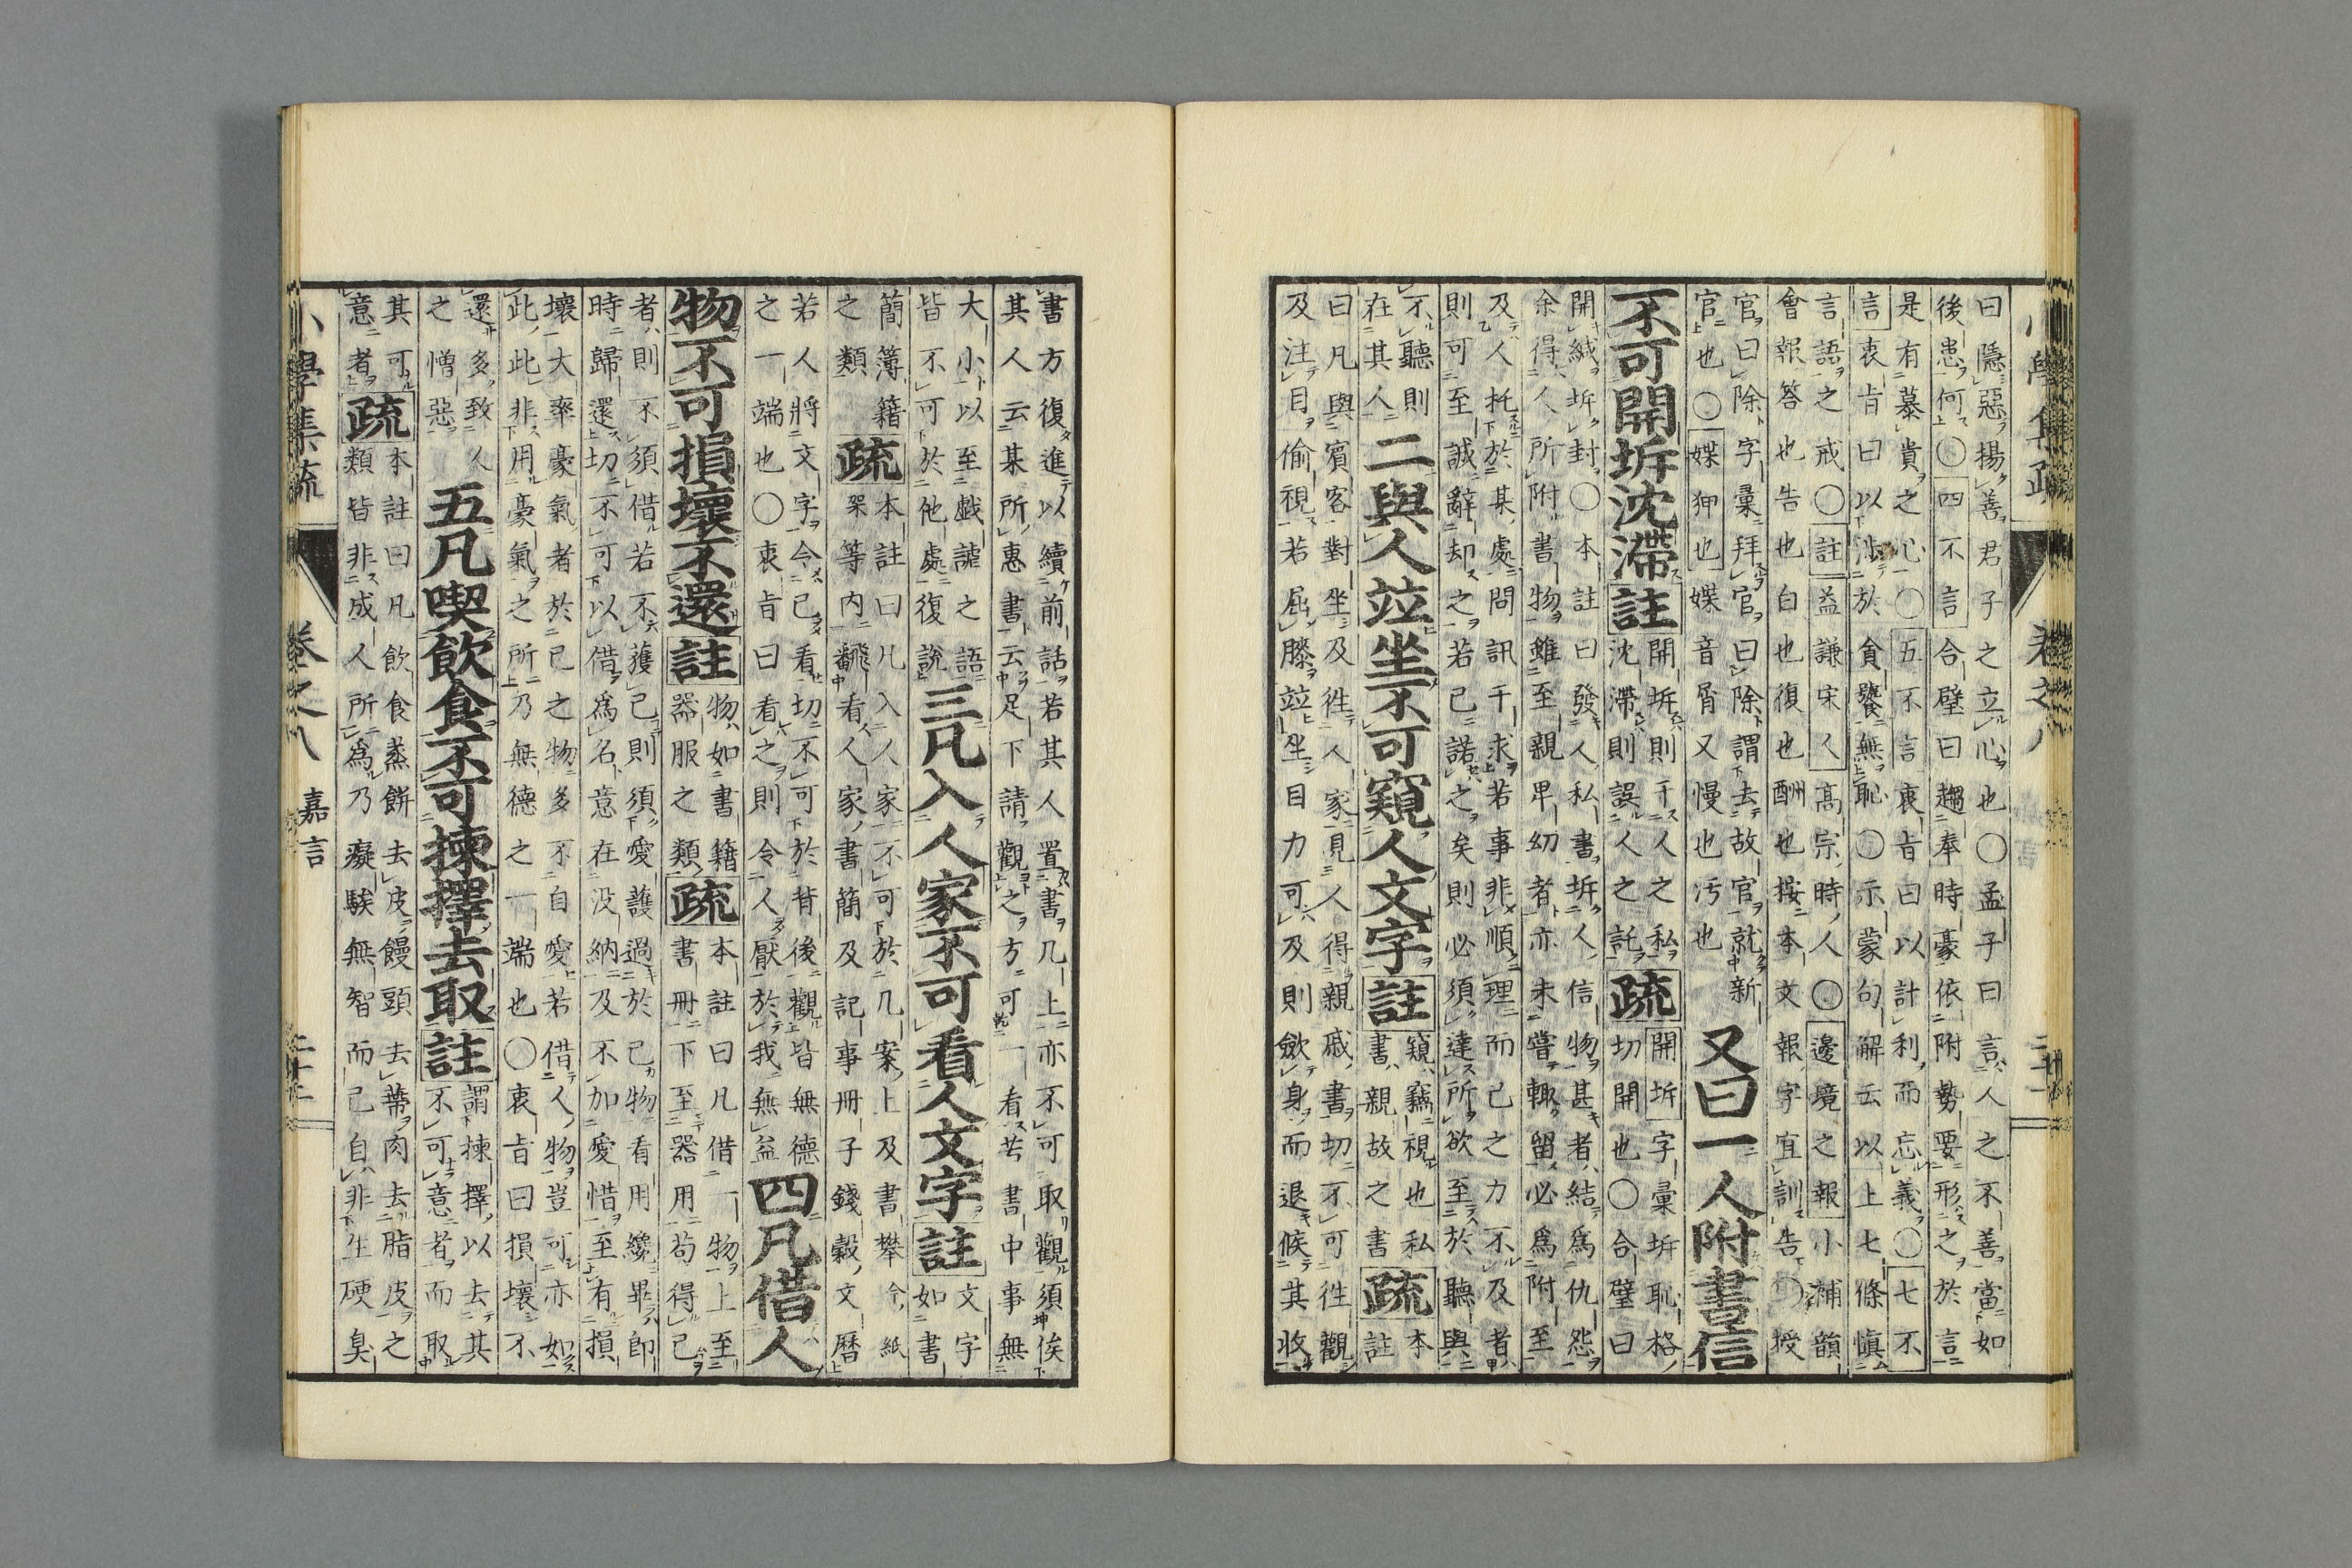 曰隱惡揚善君子之立心也○孟子曰言人之不善當如
後患何○四不言合璧曰趨奉時豪依附勢要形之於言
是有慕貴之心○五不言衷旨曰以計利而忘義○七不
言衷旨曰以涉於貪饕無恥○示蒙句解云以上七條愼
言語之戒○註益謙宋人高宗時人○邊境之報小補韻
會報答也告也白也復也酬也按本文報字宜訓告○授
官曰除字彙拜官曰除謂去故官就新
官也○媟狎也媟音屑又慢也汚也 又曰一人附書信
不可開坼沈滯註開坼則干人之私疏開坼字彙坼恥格
沈滯則誤人之託切開也○合璧曰
開緘坼封○本註曰發人私書坼人信物甚者結爲仇怨
余得人所附書物雖至親卑幼者亦未嘗輙留必爲附至
及人托於某處問訊干求若事非順理而己之力不及者
則可至誠辭却之若已諾之矣則必須達所欲至於聽與
不聽則
在其人二與人竝坐不可窺人文字註窺竊視也私疏本
書親故之書註
曰凡與賓客對坐及徃人家見人得親戚書切不可徃觀
及注目偷視若屈膝竝坐目力可及則斂身而退候其收
書方復進以續前話若其人置書几上亦不可取觀須俟
其人云某所惠書云足下請觀之方可一看若書中事無
大小以至戲謔之語
皆不可於他處復說三凡入人家不可看人文字註文字
如書
簡簿籍疏本註曰凡入人家不可於几案上及書攀令紙
之類架等内翻看人家書簡及記事冊子錢穀文曆
若人將文字令己看切不可於背後觀皆無德四凡借人
之一端也○衷旨曰看之則令人厭於我無益
物不可損壞不還註物如書籍疏本註曰凡借一物上至
器服之類書冊下至器用苟得已
者則不須借若不獲已則須愛護過於己物看用纔畢即
時歸還切不可以借爲名意在没納及不加愛惜至有損
壞大率豪氣者於己之物多不自愛若借人物豈可亦如
此此非用豪氣之所乃無德之一端也○衷旨曰損壞不
還多致人
之憎惡五凡喫飲食不可揀擇去取註謂揀擇以去其
不可意者而取
其可疏本註曰凡飲食蒸餅去皮饅頭去蔕肉去脂皮之
意者類皆非成人所爲乃癡騃無智而已自非生硬臭
小學集疏 卷之八 嘉言